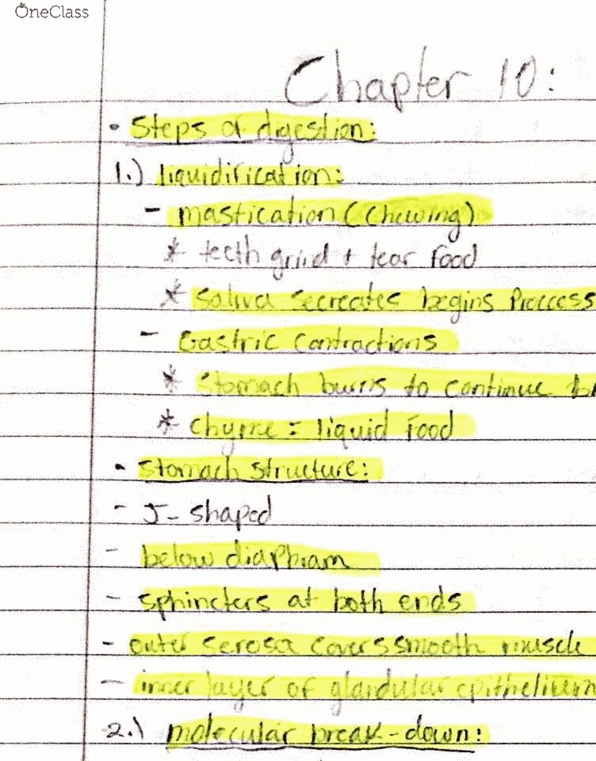 OneClass
Chapter 10:
• Steps of digestion:
1.) liquidirication:
- mastication (chewing)
* teeth grind + tear food
* Saliva secreates begins Proccess
- Gastric Contractions
* Stomach burns to continue
* Chyme = liquid food
• Stomach structure:
- J-shaped
- below diaphram
- sphincters at both ends
- outer serosa covers smooth muscle
- inner layer of glandular epithelium
2.) molecular break-down: